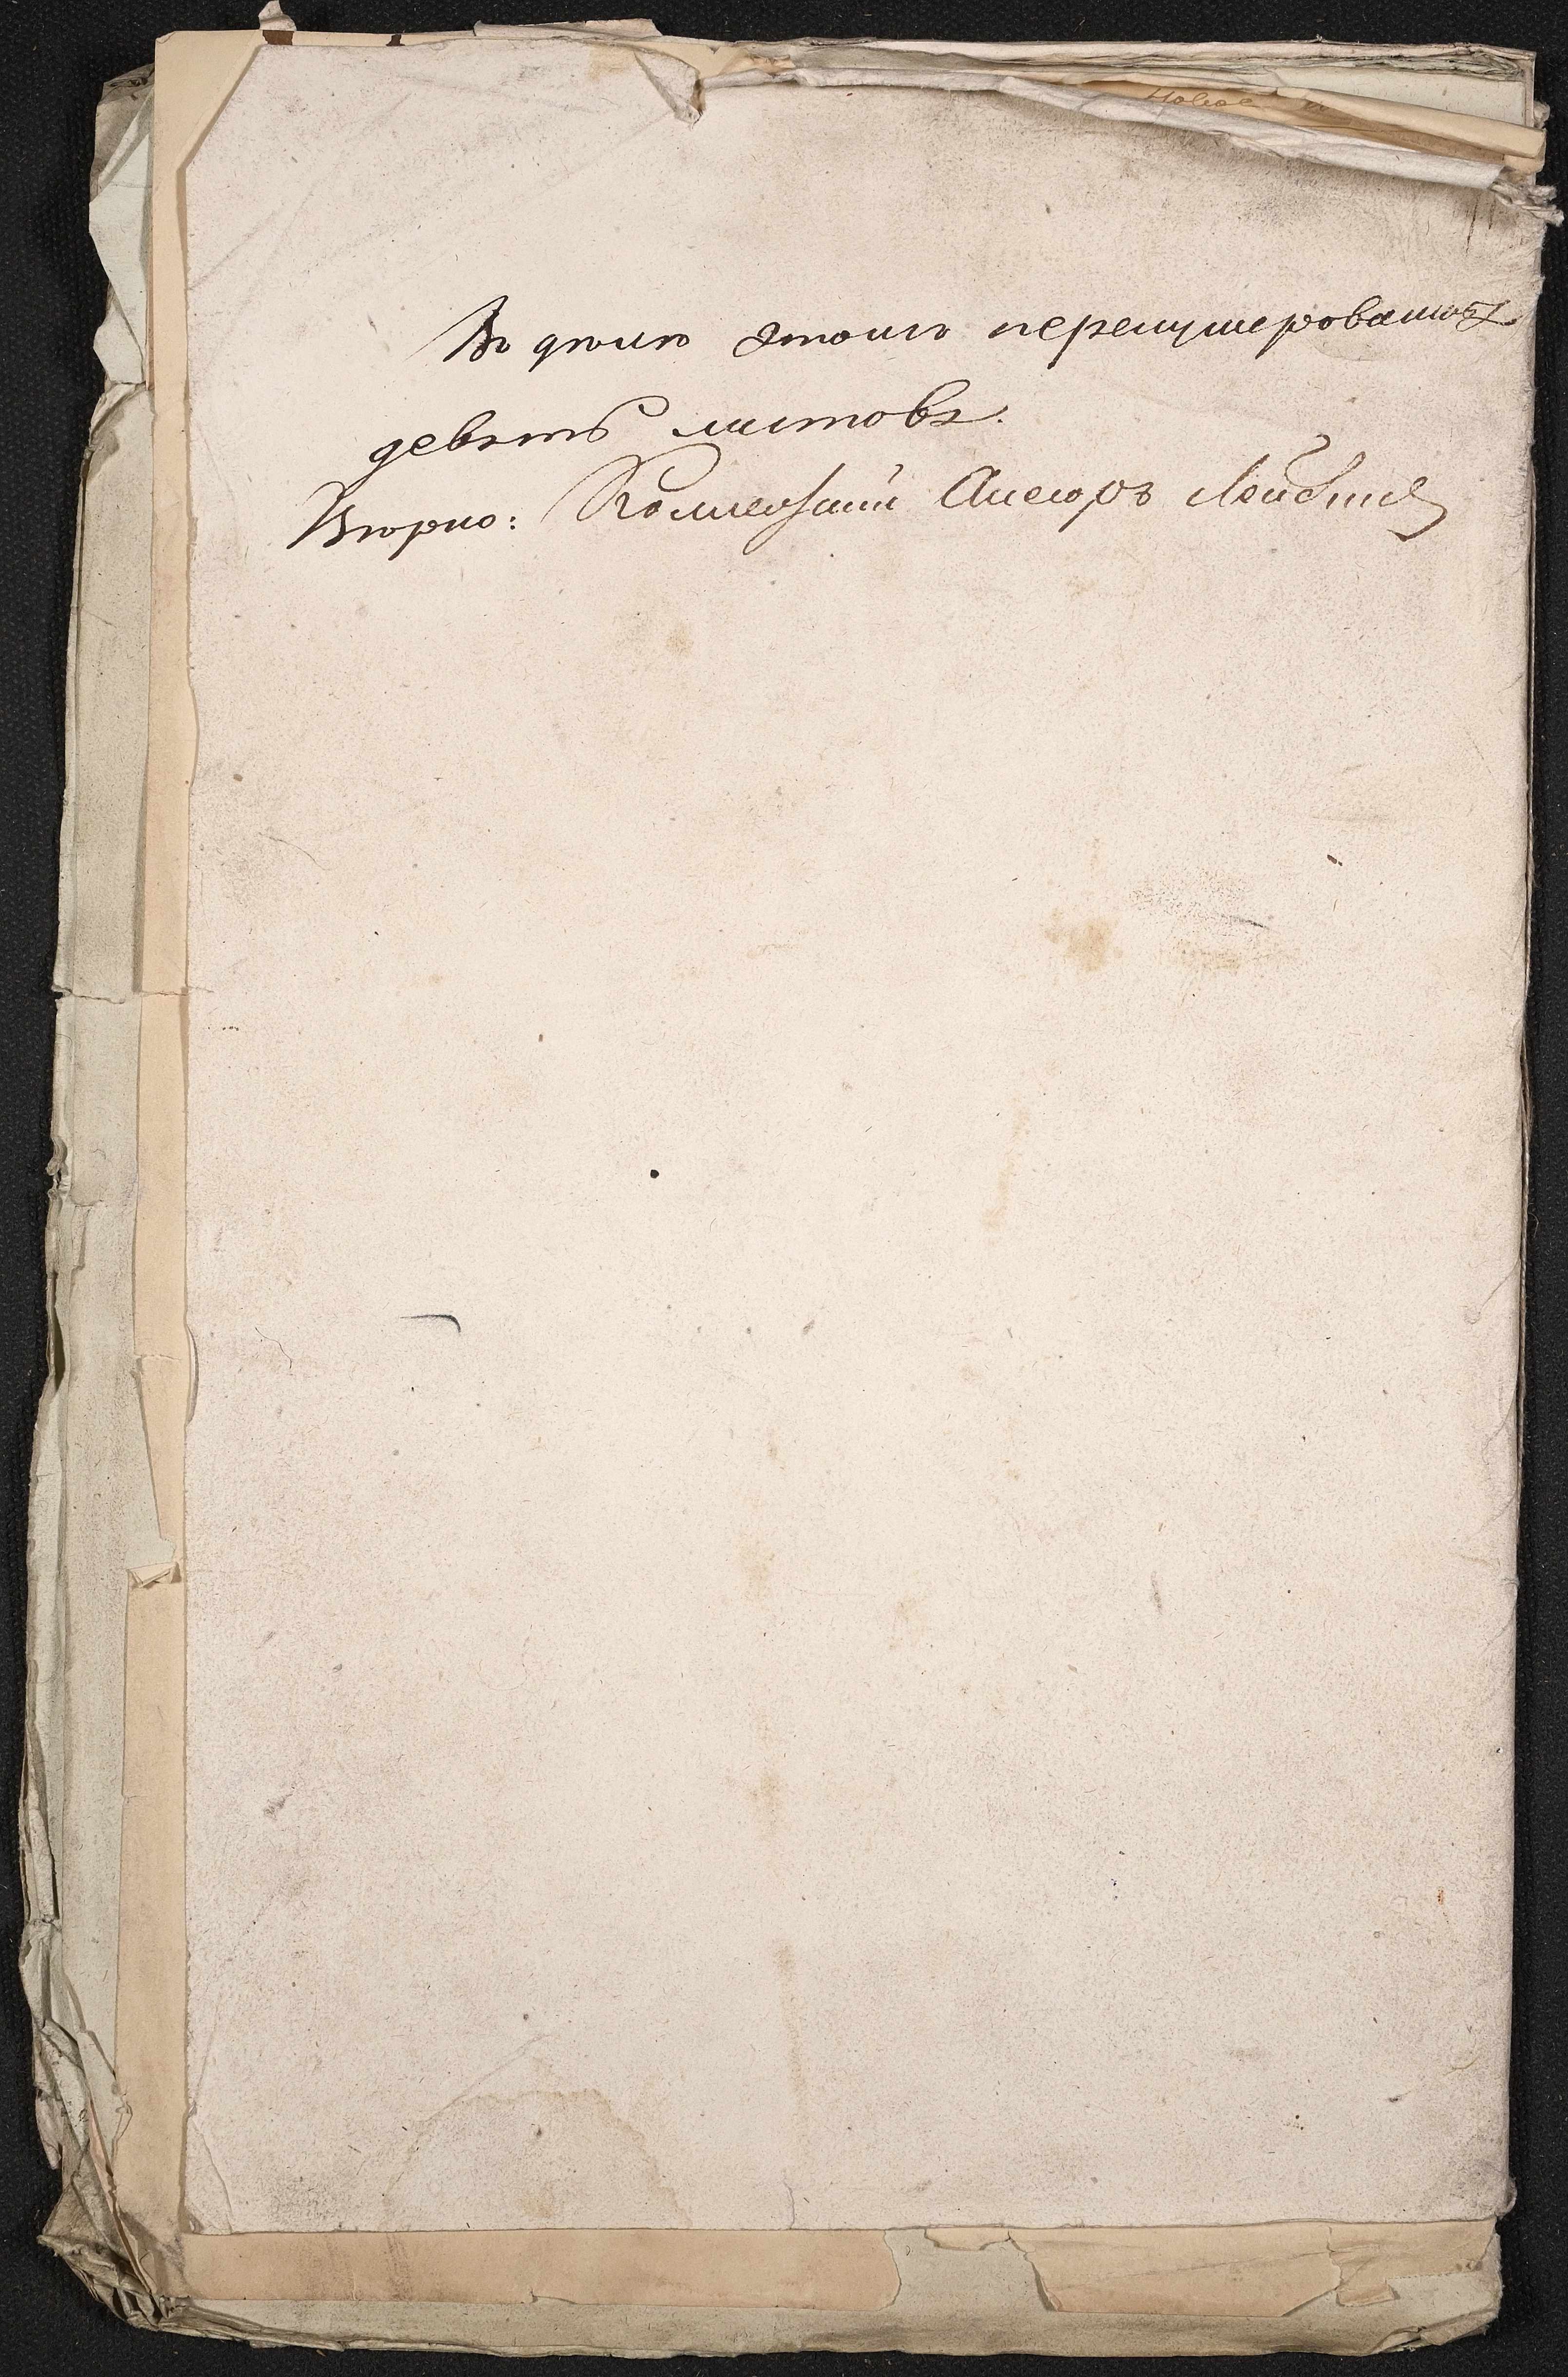 Въ дѣлѣ этомъ перенумеровано
девять листовъ.
Вѣрно: Коллежскій Асесоръ